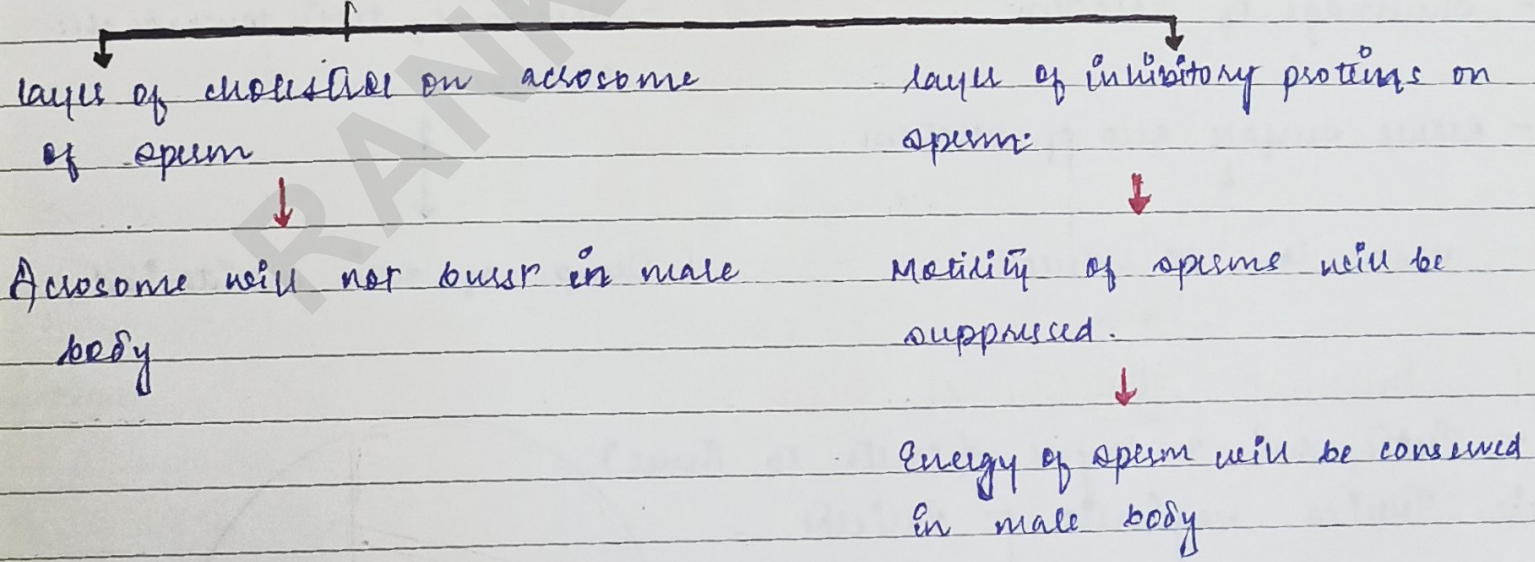 layer of cholesterol on acrosome
of sperm
Acrosome will not burst in male
body
layer of inhibitory proteins on
sperm.
Motility of sperms will be
suppressed.
Energy of sperm will be conserved
in male body
RANK